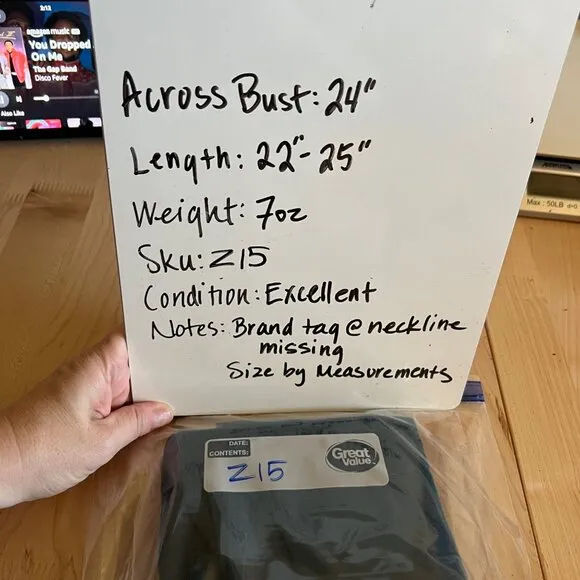 2:12
amazon music
You Dropped
On Me
The Gap Band
Disco Fever
Also Like
Across Bust: 24"
Length: 22"-25"
Weight: 7oz
Sku: Z15
Condition: Excellent
Notes: Brand tag @ neckline
missing
Size by Measurements
Max: 50LB d=0
DATE:
CONTENTS:
Z15
Great
Value